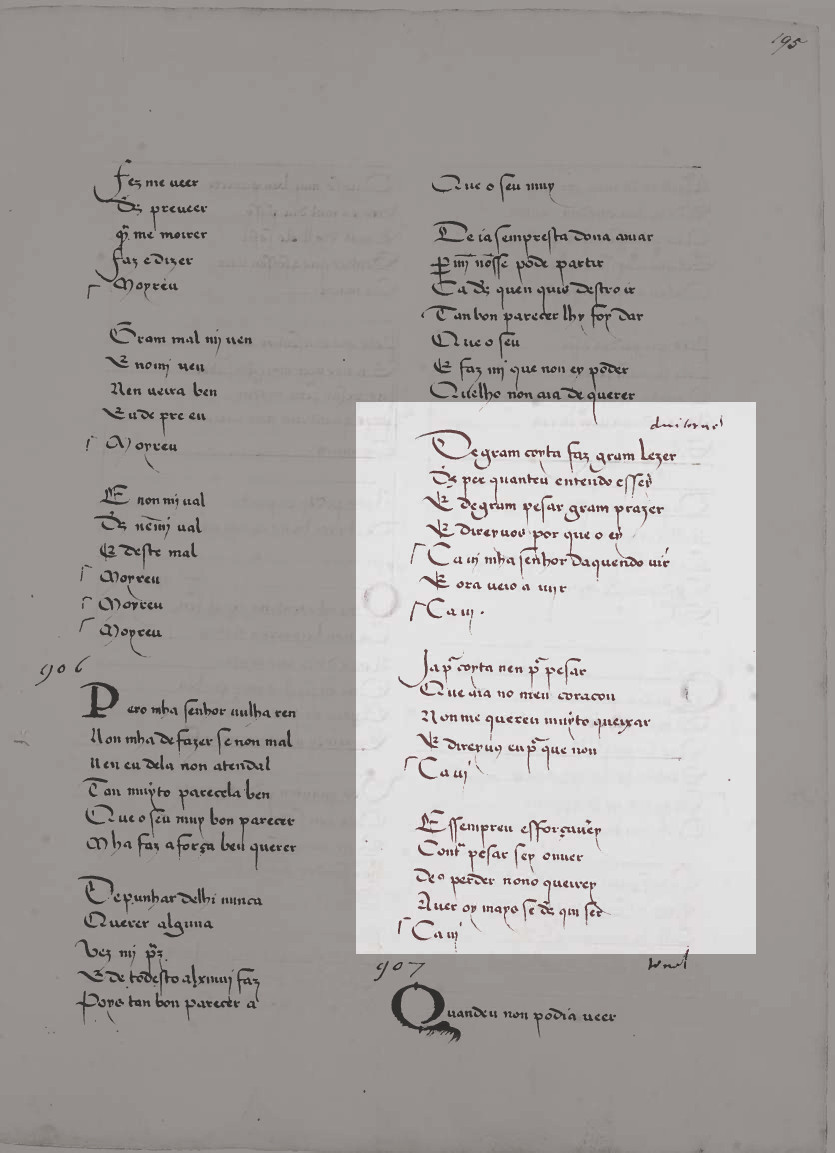 195
fez me ueer
ds̄ preueer
q̄ me moirer
faz e dizer
Moyreu
Gram mal mj uen
E nomj uen
Nen ueira ben
Eude pre eu
Moyreu
E non mi ual
Ds̄ nē mj ual
E deste mal
Moyreu
Moyreu
Moyreu
906
Pero mha senhor uulha ren
Non mha de fazer se non mal
Nen eu dela non atendal
Tan muyto parecela ben
Que o seu muy bon parecer
Mha faz a força ben querer
De punhar delhi nunca
Querer alguna
Vez mj p̄z
E de todesto alxmuj faz
Poys tan bon parecer a
Que o seu muy
De ia sempresta dona amar
Per mī nōsse pode partir
Ca ds̄ quen quis destroir
Tan bon parecer lhy foy dar
Que o seu
E faz mj que non ey poder
Quelho non aia de querer
Degram coyta faz gram lezer
Ds̄ per quanteu entendo esser
E degram pesar gram prazer
E direyuos por que o ey
Ca ui mha senhor daquendo uir
E ora ueio a uijr
Ca ui .
Ja pᵃ coyta nen pᵃ pesar
Que aia no meu coraçon
Non me quereu muyto queixar
E direyuꝯ eu pᵃ que non
Ca ui
E ssempreu efforçaua ey
Contᵃ pesar sey ouuer
Deo perder nono queirey
Auer oy mays se ds̄ qui ser
Ca ui
907
tornel
Quandeu non podia ueer